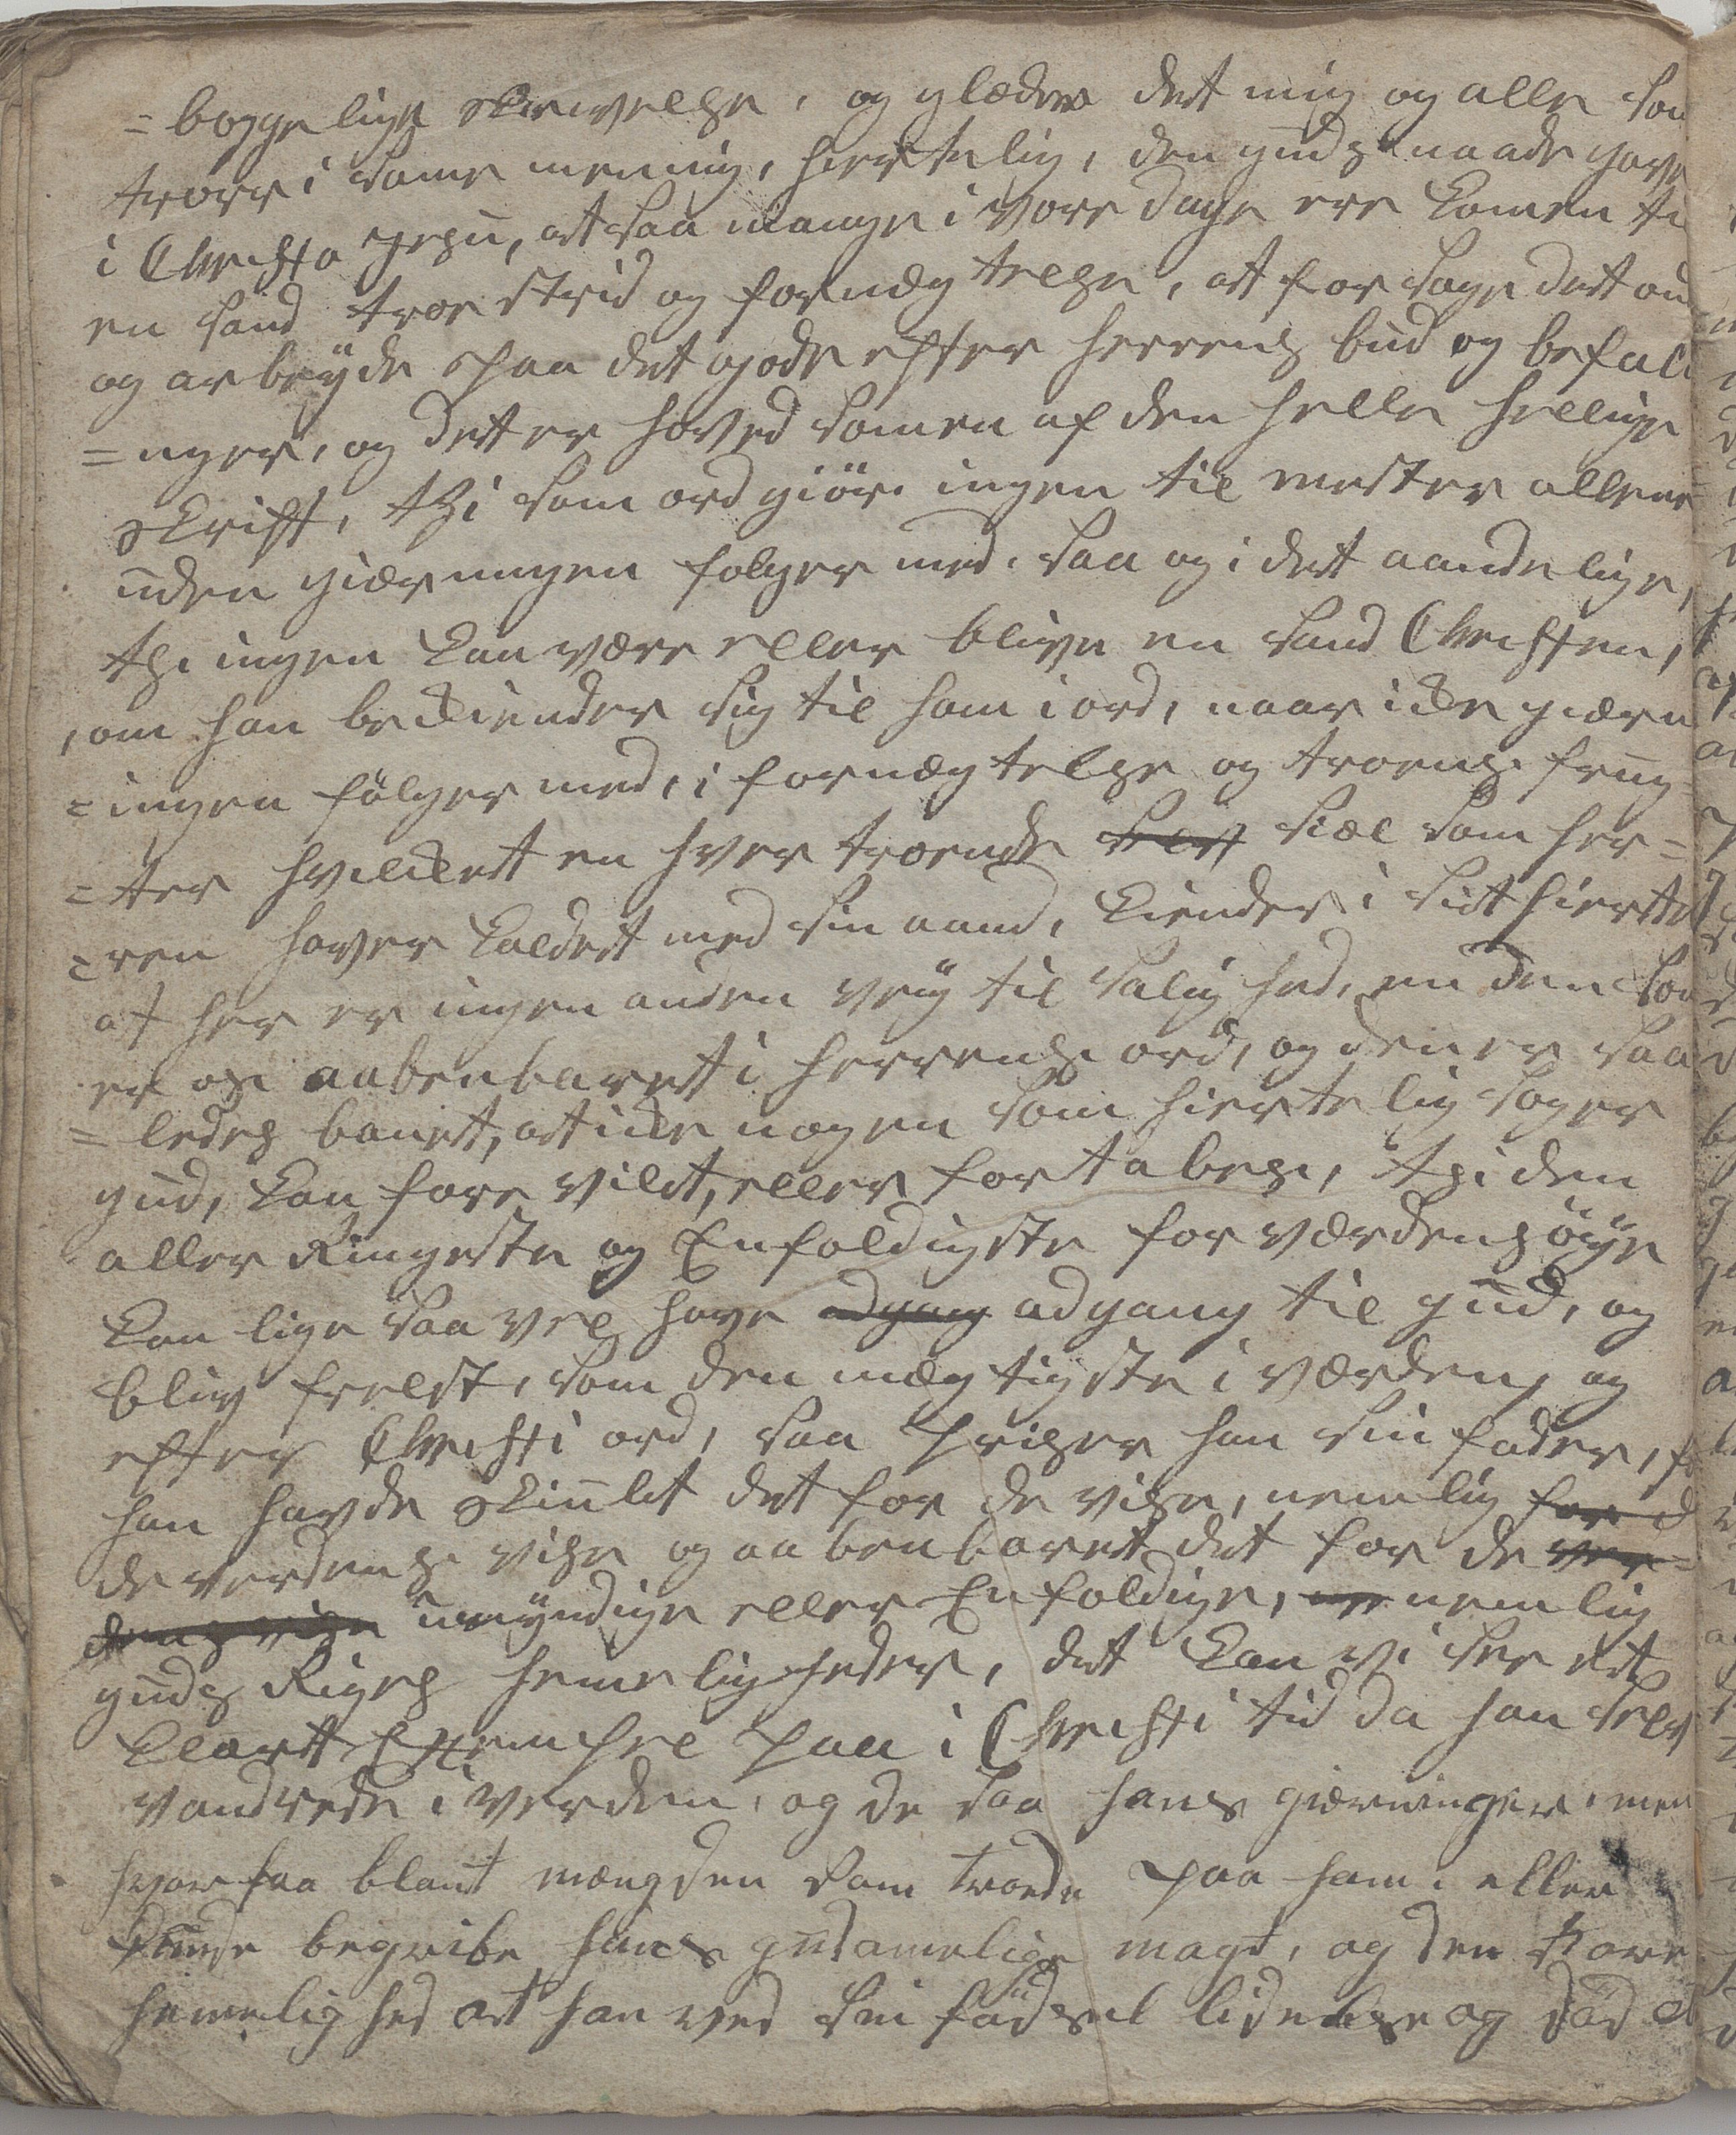 = boggelige skrivelse, og glæder det mig og alle som
troer i same mening, hiertelig, den guds naade gave
i Christo Jesu, at saa mange i vore dage ere komen til
en sand troe strid og fornægtelse, at forsage det ond
og arbeyde paa det gode efter herrens bud og befali
= nger, og det er hoved somen af den helle hellige
skrift, thi som ord giør ingen til mester allene
uden gierningen følger med, saa og i det aandelige,
thi ingen kan være eller blive en sand Christen,
om han bekiender sig til ham i ord, naar ikke giærn
= ingen følger med, i fornægtelse og troens frug=
= ter hvilket en hver troende siæl som her=
= ren haver kaldet med sin aand, kiender i sit hierte
at her er ingen anden vey til salighed, en den som
er os aabenbaret i herrens ord, og den er saa
= ledes banet, at ikke nogen som hiertelig søger
gud, kan fare vildt, eller fortabes, thi den
aller Ringeste og Enfoldigste for værdens øye
kan lige saa vel have adgang adgang til gud, og
bliv frelst, som den mægtigste i værden, og
efter Christi ord, saa priser han sin fader, f
han havde skiult det for de vise, nemlig for d
de verdens vise og aabenbaret det for de ver=
dens vise umyndige eller Enfoldige, nemlig
guds Riges hemeligheder, det kan vi see et
klart Exempel paa i Christi tid da han selv
vandrede i verden, og de saa hans gierninger, men
hvor faa blant mængden som troede paa ham, eller
kunde begribe hans gudomelige magt, og den store
hemelighed at han ved sin fødsel lidelse og død